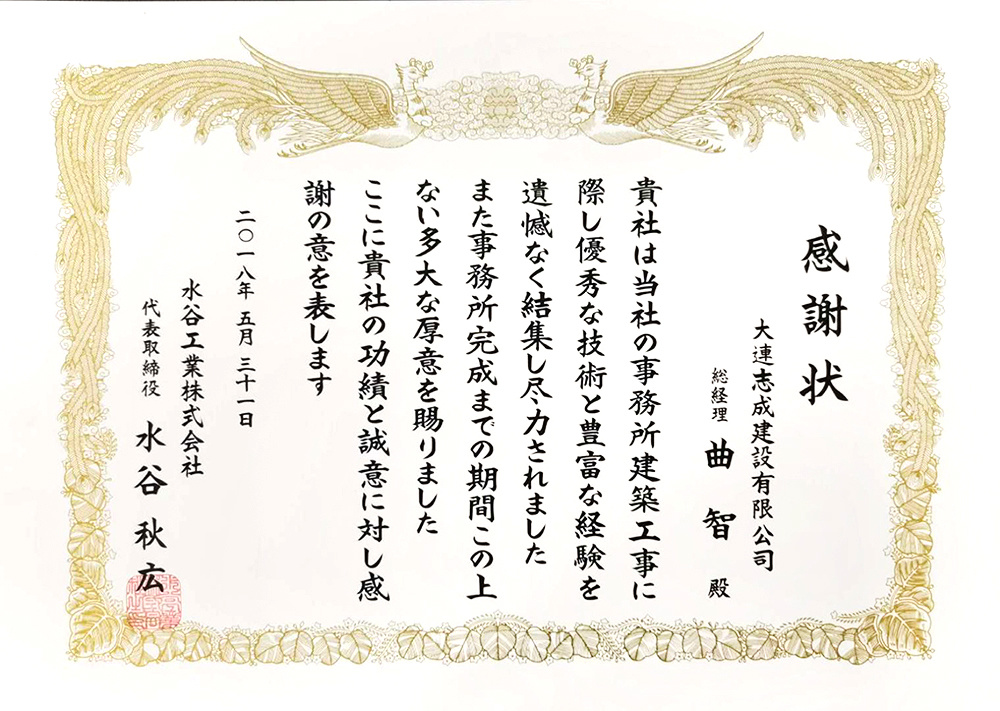 感謝状
大連志成建設有限公司
総経理 曲智 殿
貴社は当社の事務所建築工事に
際し優秀な技術と豊富な経験を
遺憾なく結集し尽力されました
また事務所完成までの期間この上
ない多大な厚意を賜りました
ここに貴社の功績と誠意に対し感
謝の意を表します
二〇一八年 五月 三十一日
水谷工業株式会社
代表取締役 水谷秋広